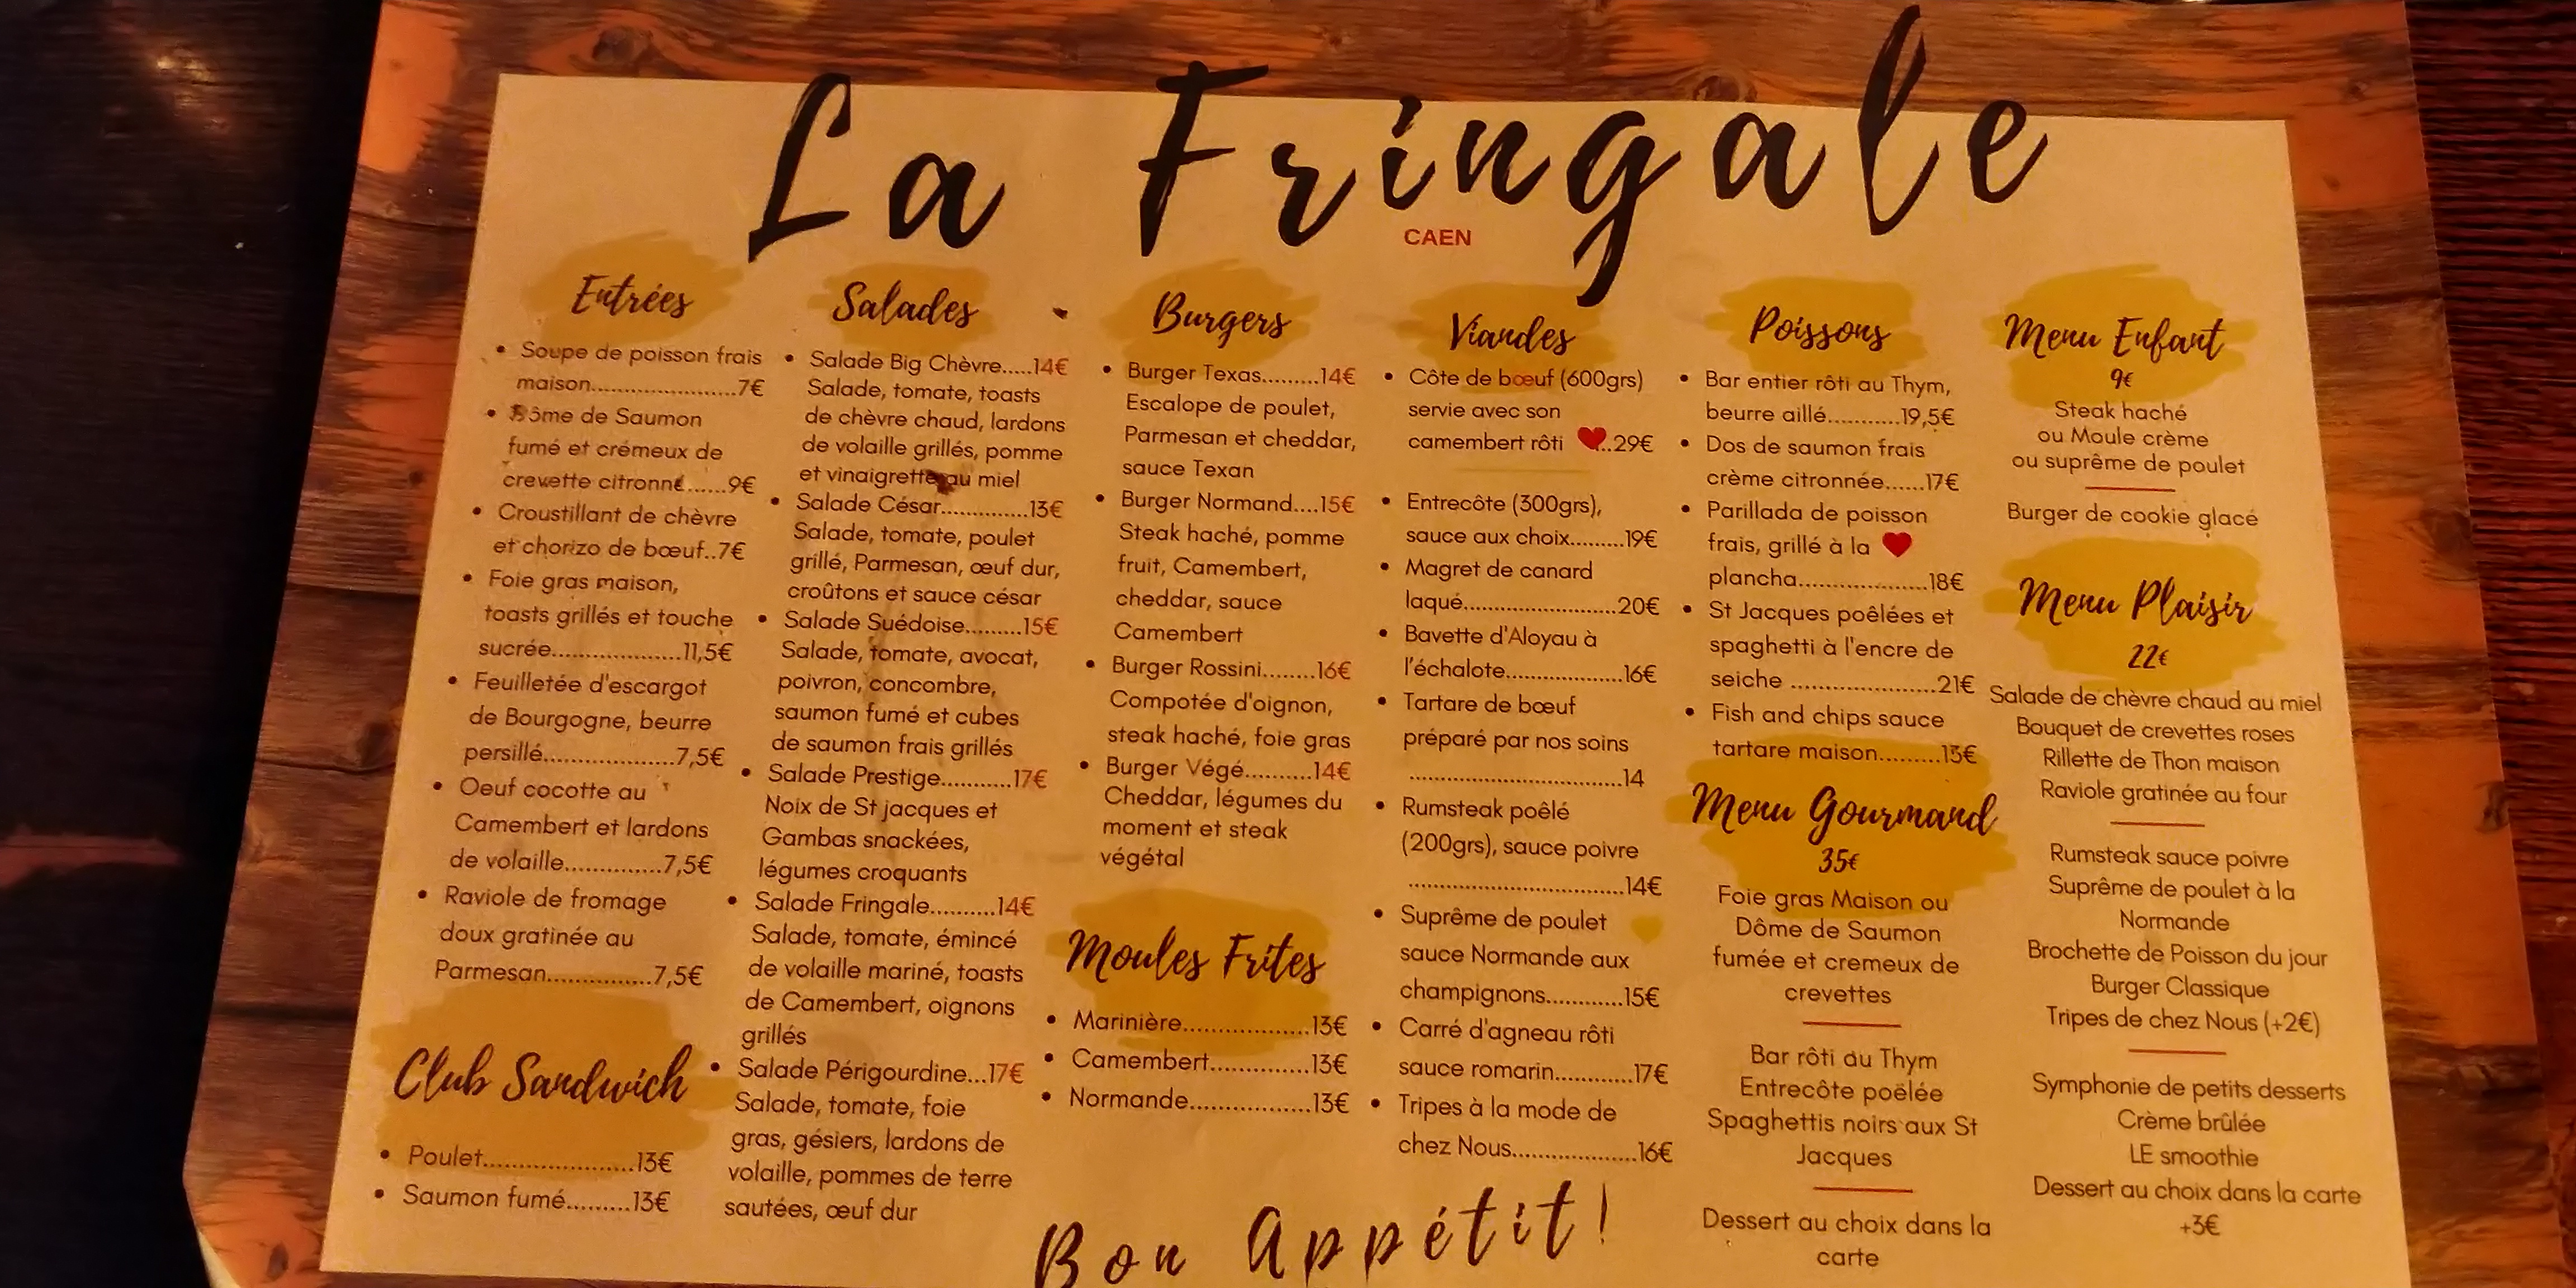 La Fringale
CAEN
Entrées
• Soupe de poisson frais
maison......................7€
• Dôme de Saumon
fumé et crémeux de
crevette citronné......9€
• Croustillant de chèvre
et chorizo de bœuf..7€
• Foie gras maison,
toasts grillés et touche
sucrée....................11,5€
• Feuilletée d'escargot
de Bourgogne, beurre
persillé....................7,5€
• Oeuf cocotte au
Camembert et lardons
de volaille...............7,5€
• Raviole de fromage
doux gratinée au
Parmesan................7,5€
Club Sandwich
• Poulet.......................13€
• Saumon fumé..........13€
Salades
• Salade Big Chèvre.....14€
Salade, tomate, toasts
de chèvre chaud, lardons
de volaille grillés, pomme
et vinaigrette au miel
• Salade César..............13€
Salade, tomate, poulet
grillé, Parmesan, œuf dur,
croûtons et sauce césar
• Salade Suédoise.........15€
Salade, tomate, avocat,
poivron, concombre,
saumon fumé et cubes
de saumon frais grillés
• Salade Prestige...........17€
Noix de St jacques et
Gambas snackées,
légumes croquants
• Salade Fringale..........14€
Salade, tomate, émincé
de volaille mariné, toasts
de Camembert, oignons
grillés
• Salade Périgourdine...17€
Salade, tomate, foie
gras, gésiers, lardons de
volaille, pommes de terre
sautées, œuf dur
Burgers
• Burger Texas.........14€
Escalope de poulet,
Parmesan et cheddar,
sauce Texan
• Burger Normand....15€
Steak haché, pomme
fruit, Camembert,
cheddar, sauce
Camembert
• Burger Rossini........16€
Compotée d'oignon,
steak haché, foie gras
• Burger Végé..........14€
Cheddar, légumes du
moment et steak
végétal
Moules Frites
• Marinière...................13€
• Camembert...............13€
• Normande..................13€
Viandes
• Côte de bœuf (600grs)
servie avec son
camembert rôti ❤..29€
• Entrecôte (300grs),
sauce aux choix.........19€
• Magret de canard
laqué.........................20€
• Bavette d'Aloyau à
l'échalote...................16€
• Tartare de bœuf
préparé par nos soins
...................................14
• Rumsteak poêlé
(200grs), sauce poivre
...................................14€
• Suprême de poulet
sauce Normande aux
champignons............15€
• Carré d'agneau rôti
sauce romarin............17€
• Tripes à la mode de
chez Nous....................16€
Poissons
• Bar entier rôti au Thym,
beurre aillé............19,5€
• Dos de saumon frais
crème citronnée......17€
• Parillada de poisson
frais, grillé à la ❤
plancha....................18€
• St Jacques poêlées et
spaghetti à l'encre de
seiche .......................21€
• Fish and chips sauce
tartare maison..........15€
Menu Gourmand
35€
Foie gras Maison ou
Dôme de Saumon
fumée et cremeux de
crevettes
Bar rôti au Thym
Entrecôte poëlée
Spaghettis noirs aux St
Jacques
Dessert au choix dans la
carte
Menu Enfant
9€
Steak haché
ou Moule crème
ou suprême de poulet
Burger de cookie glacé
Menu Plaisir
22€
Salade de chèvre chaud au miel
Bouquet de crevettes roses
Rillette de Thon maison
Raviole gratinée au four
Rumsteak sauce poivre
Suprême de poulet à la
Normande
Brochette de Poisson du jour
Burger Classique
Tripes de chez Nous (+2€)
Symphonie de petits desserts
Crème brûlée
LE smoothie
Dessert au choix dans la carte
+3€
Bon Appétit!